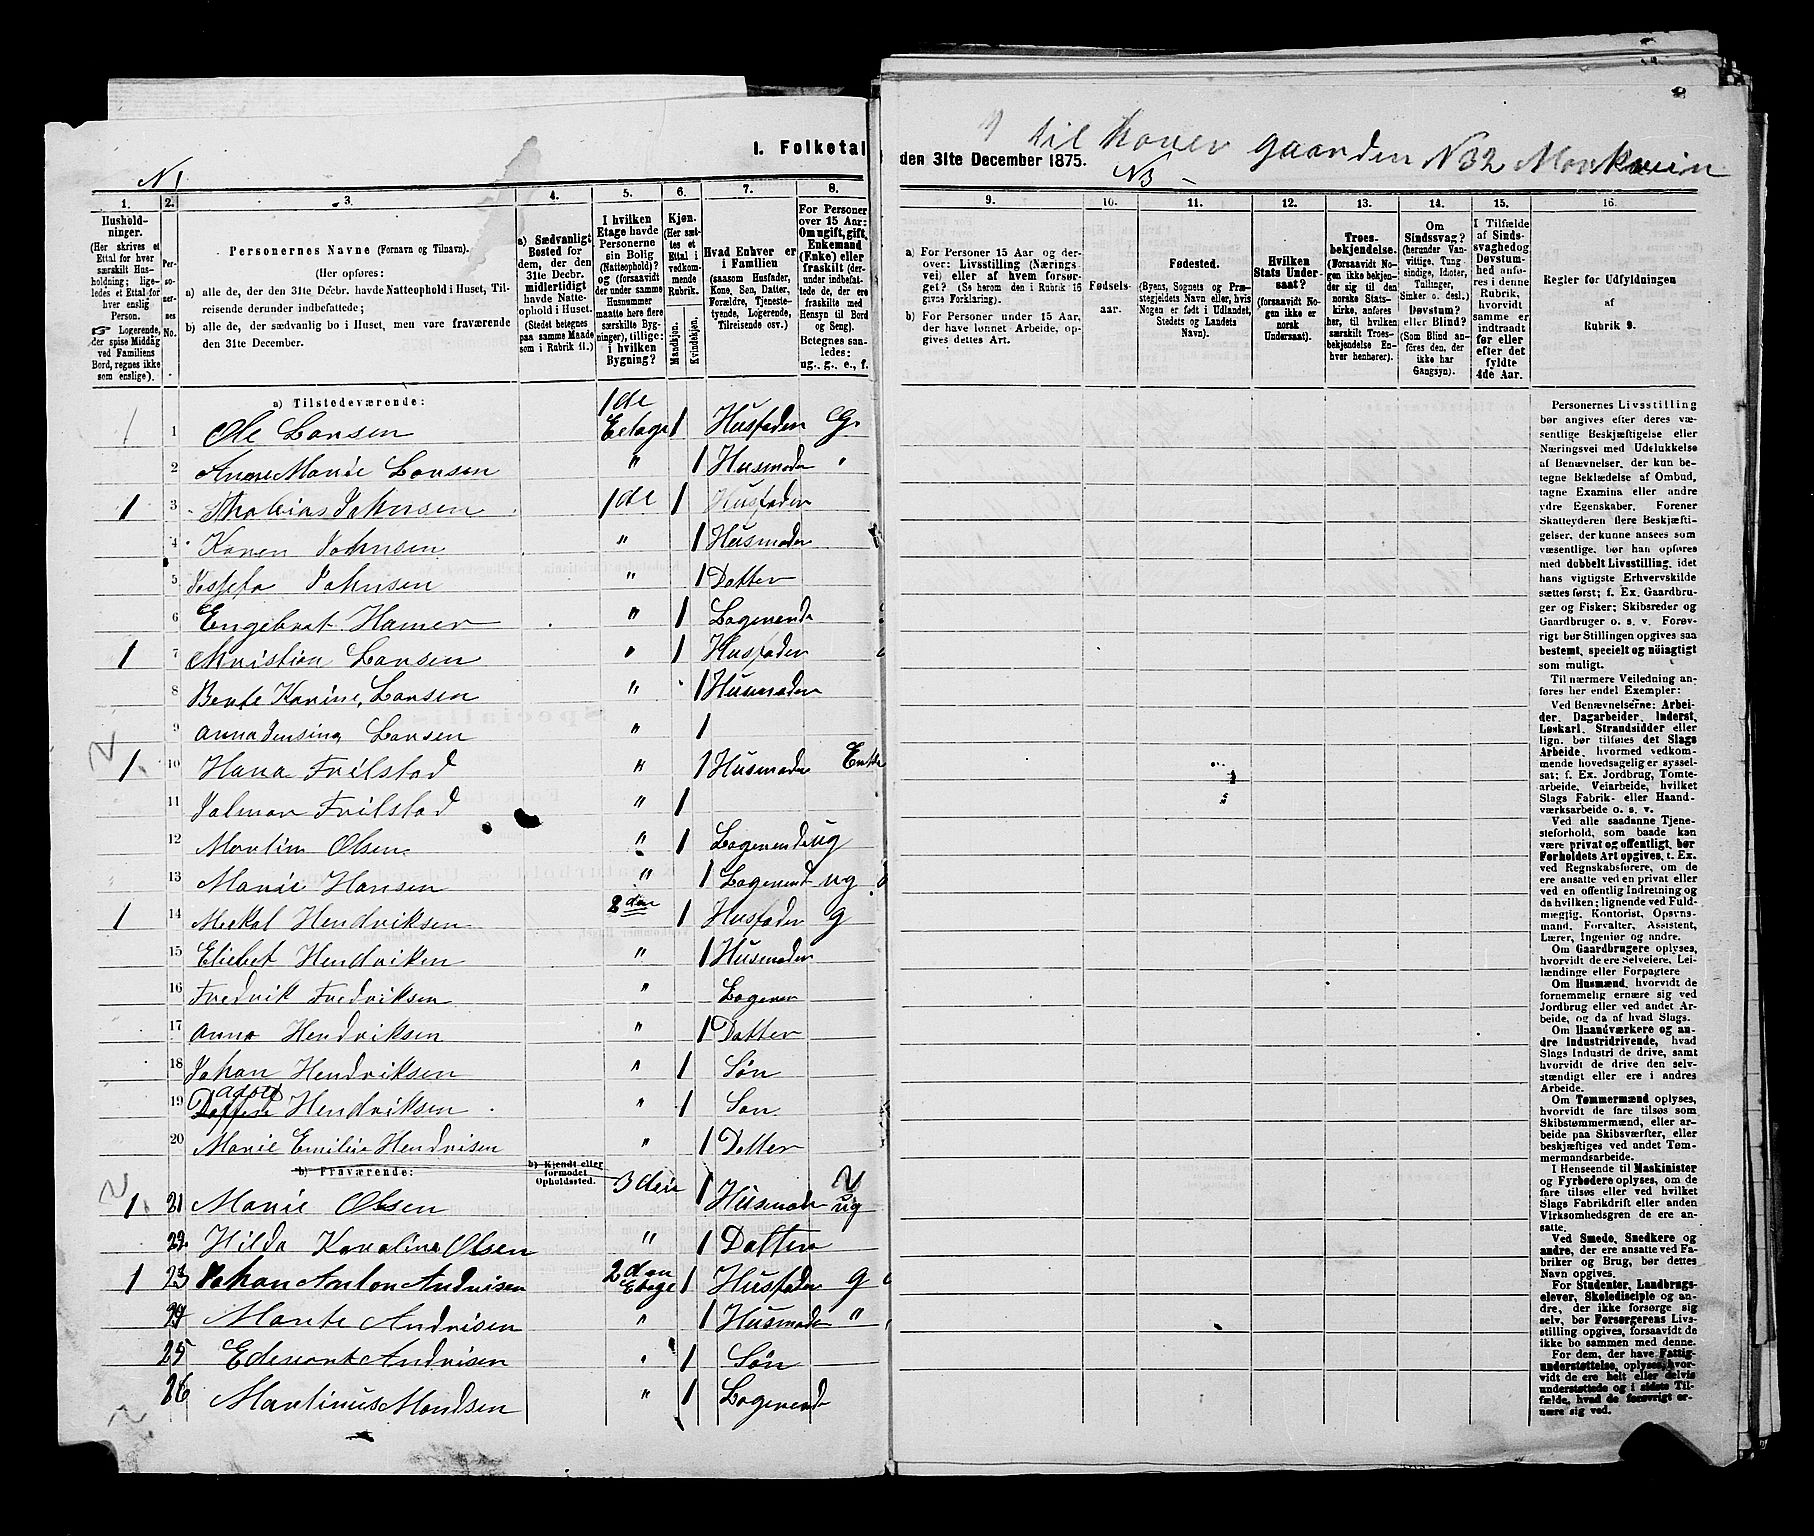 I. Folketal
den 31te December 1875.
til gaarden N 32
N 1.
N3 –
1.
Husholdninger.
(Her skrives et
Ettal for hver
særskilt Husholdning;
ligeledes et Ettal for
hver enslig
Person.
Logerende,
der spise Middag
ved Familiens
Bord, regnes ikke
som enslige).
2.
Personernes
No.
3.
Personernes Navne (Fornavn og Tilnavn).
(Her opføres:
a) alle de, der den 31te Decbr. havde Natteophold i Huset, Tilreisende derunder indbefattede;
b) alle de, der sædvanlig bo i Huset, men vare fraværende
den 31te December.
4.
a) Sædvanligt
Bosted for
dem, der den
31te Decbr.
midlertidigt
havde Natteophold i Huset.
(Stedet betegnes
paa samme Maade
som i Rubrik 11.)
5.
I hvilken
Etage havde
Personerne
sin Bolig
(Natteophold)?
(forsaavidt
der under samme
Husnummer
maatte høre flere
særskilte Bygninger), tillige:
i hvilken
Bygning?
6.
Kjøn.
(Her sættes et
Ettal i
vedkommende
Rubrik.
Mandkjøn.
Kvindekjøn.
7.
Hvad Enhver er
i Familien
(saasom Husfader,
Kone, Søn, Datter,
Forældre, Tjenestetyende, Logerende,
Tilreisende osv.)
8.
For Personer
over 15 Aar:
Om ugift, gift,
Enkemand
(Enke) eller
fraskilt (derunder indbefattede, de
fraskilte med
Hensyn til Bord
og Seng).
Betegnes saaledes:
ug., g., e., f.
9.
a) For Personer 15 Aar og derover: Livsstilling (Næringsvei) eller af hvem forsørget? (Se herom den i Rubrik 16
givne Forklaring).
b) For Personer under 15 Aar,
der have lønnet Arbeide, opgives dettes Art.
10.
Fødselsaar.
11.
Fødested.
(Byens, Sognets og Præstegjeldets Navn eller, hvis
Nogen er født i Udlandet,
Stedets og Landets
Navn).
12.
Hvilken
Stats Undersaat?
(forsaavidt Nogen ikke er
norsk
Undersaat).
13.
Troesbekjendelse.
(Forsaavidt Nogen ikke bekjender sig til den
norske Statskirke, anføres
her, til hvilken
særskilt Troesbekjendelse Enhver henhører).
14.
Om
Sindssvag?
(herunder Vanvittige, Tungsindige, Idioter,
Tullinger,
Sinker o. desl.)
Døvstum?
eller Blind?
(Som Blind anføres den, der
ikke har
Gangsyn).
15.
I Tilfælde
af Sindssvaghed og
Døvstumhed anføres i denne
Rubrik,
hvorvidt
samme er
indtraadt
før eller
efter det
fyldte
4de Aar.
16.
Regler for Udfyldningen
af
Rubrik 9.
a) Tilstedeværende:
1 1 Ole Larsen 1de Etage 1 Husfader g.
2 Anne Marie Larsen " 1 Husmoder "
1 3 Thobias Johnsen 1de 1 Husfader
4 Karen Johnsen " 1 Husmoder
5 Josefa Johnsen " 1 Datter
6 Engebret Hamer " 1 Logerende
1 7 Christian Larsen " 1 Husfader
8 Bente Karine Larsen " 1 Husmoder
9 Anna Jensine Larsen " 1
1. 10 Hana Frilstad " 1 Husmoder Enke
11 Jalmar Frilstad " 1
12 Martin Olsen " 1 Logerende ug
13 Marie Hansen " 1 Logerend ug
1 14 Mekal Hendriksen 2den 1 Husfader g
15 Eliebet Hendriken " 1 Husmoder
16 Fredrik Fredriksen " Logerer
17 Anna Hendriksen " 1 Datter
18 Johan Hendriksen " 1 Søn
19 Adolf Hendriksen " 1 Søn
20 Marie Emilie Hendrisen " 1 Datter
b) Fraværende:
b) Kjendt eller
formodet
Opholdssted.
1. 21 Marie Olsen 3die 1 Husmoder ug
22. Hilda Karoline Olsen " 1 Datter
1 23 Johan Anton Andrisen 2den Etage 1 Husfader g
24 Marte Andrisen " 1 Husmoder "
25 Edevart Andrisen " 1 Søn
26 Martinus Mondsen " 1 Logerend
Personernes Livsstilling
bør angives efter deres væsentlige Beskjæftigelse eller
Næringsvei med Udelukkelse
af Benævnelser, der kun betegne Beklædelse af Ombud,
tagne Examina eller andre
ydre Egenskaber. Forener
Skatteyderen flere Beskjæftigelser, der kunne ansees som
væsentlige, bør han opføres
med dobbelt Livsstilling, idet
hans vigtigste Erhvervskilde
sættes først; f. Ex. Gaardbruger og Fisker; Skibsreder og
Gaardbruger o. s. v. Forøvrigt bør Stillingen opgives saa
bestemt, specielt og nöiagtigt
som muligt.
Til nærmere Veiledning anføres her endel Exempler:
Ved Benævnelserne: Arbeider, Dagarbeider, Inderst,
Løskarl, Strandsidder eller
lign. bør tilføies det Slags
Arbeide, hvormed vedkommende hovedsagelig er sysselsat; f. Ex. Jordbrug, Tomtearbeide, Veiarbeide, hvilket
Slags Fabrik- eller Haandværksarbeide o. s. v.
Ved alle saadanne Tjenesteforhold, som baade kan
være privat og offentligt, bør
Forholdets Art opgives, t. Ex.
ved Regnskabsførere, om de
ere ansatte ved en privat eller
ved en offentlig Indretning og
da hvilken; lignende ved Fuldmægtig, Kontorist, Opsynsmand, Forvalter, Assistent,
Lærer, Ingeniør og andre.
Om Gaardbrugere oplyses,
hvorvidt de ere Selveiere, Leilændinge eller Forpagtere
Om Husmænd, hvorvidt de
fornemmelig ernære sig ved
Jordbrug eller ved andet Arbeide, og da af hvad Slags.
Om Haandværkere og andre Industridrivende, hvad
Slags Industri de drive, samt
hvorvidt de drive den selvstændigt eller ere i andres
Arbeide.
Om Tømmermænd oplyses,
hvorvidt de fare tilsøs som
Skibstømmermænd, eller arbeide paa Skibsværfter, eller
beskjæftiges ved andet Tømmermandsarbeide.
I Henseende til Maskinister
og Fyrbødere oplyses, om de
fare tilsøs eller ved hvilket
Slags Fabrikdrift eller anden
Virksomhedsgren de ere ansatte.
Ved Smede, Snedkere og
andre, der ere ansatte ved Fabriker og Brug, bør dettes
Navn opgives.
For Studenter, Landbrugselever, Skoledisciple og andre, der ikke forsørge sig
selv, bør Forsørgerens Livsstilling opgives, forsaavidt de
ikke bo sammen med denne.
For dem, der have Fattigunderstøttelse, oplyses, hvorvidt de ere helt eller delvis
understøttede og i sidste Tilfælde, hvad de forøvrigt ernære sig ved.